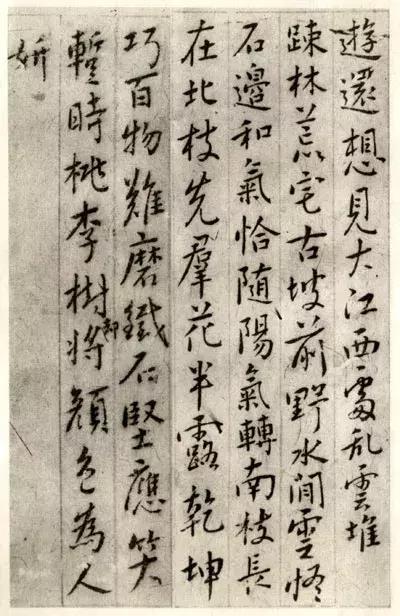 遊還想見大江西處乱雲堆
踈林荒宅古坡前野水閒雲恠
石邊和氣恰随陽氣轉南枝長
在北枝先羣花半露乾坤
巧百物難磨鐵石堅應笑
暫時桃李樹却將顏色為人
妍